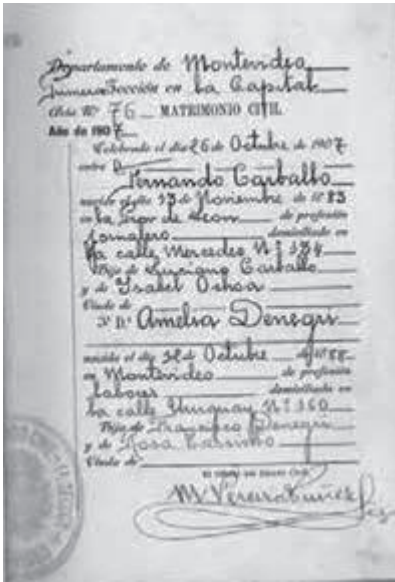 Departamento de Montevideo
Primera Sección en la Capital
Acta Nº 76 MATRIMONIO CIVIL
Año de 1907
Celebrado el día 26 de Octubre de 1907
entre D.
Fernando Carballo
nacido el día 13 de Noviembre de 1883
en la Prov de Leon de profesión
Jornalero domiciliado en
la calle Mercedes Nº
Hijo de Luciano Carballo
y de Isabel Ochoa
Viudo de
Y Dª Amelia Denegri
nacida el día de Octubre de 1888
en Montevideo de profesión
labores domiciliada en
la calle Uruguay Nº 360
Hija de Francisco Denegri
y de Rosa
Viuda de
El Oficial del Estado Civil
M. Pereira Núñez